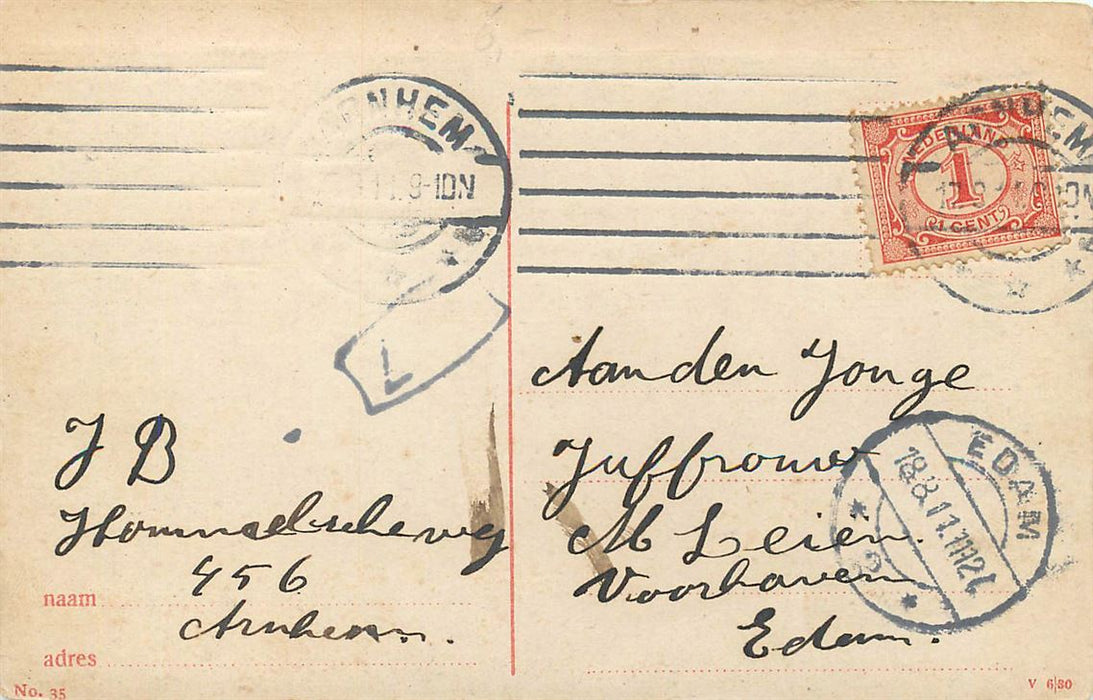 ARNHEM
9-10N
ARNHEM
NEDERLAND
1
(1 CENT)
L
J B
Hommelscheweg
456
Arnhem.
naam
adres
No. 35
Aan den Jonge
Juffrouw
M Leien.
Voorhaven
Edam.
EDAM
18.8.11.11-12
V 6|30